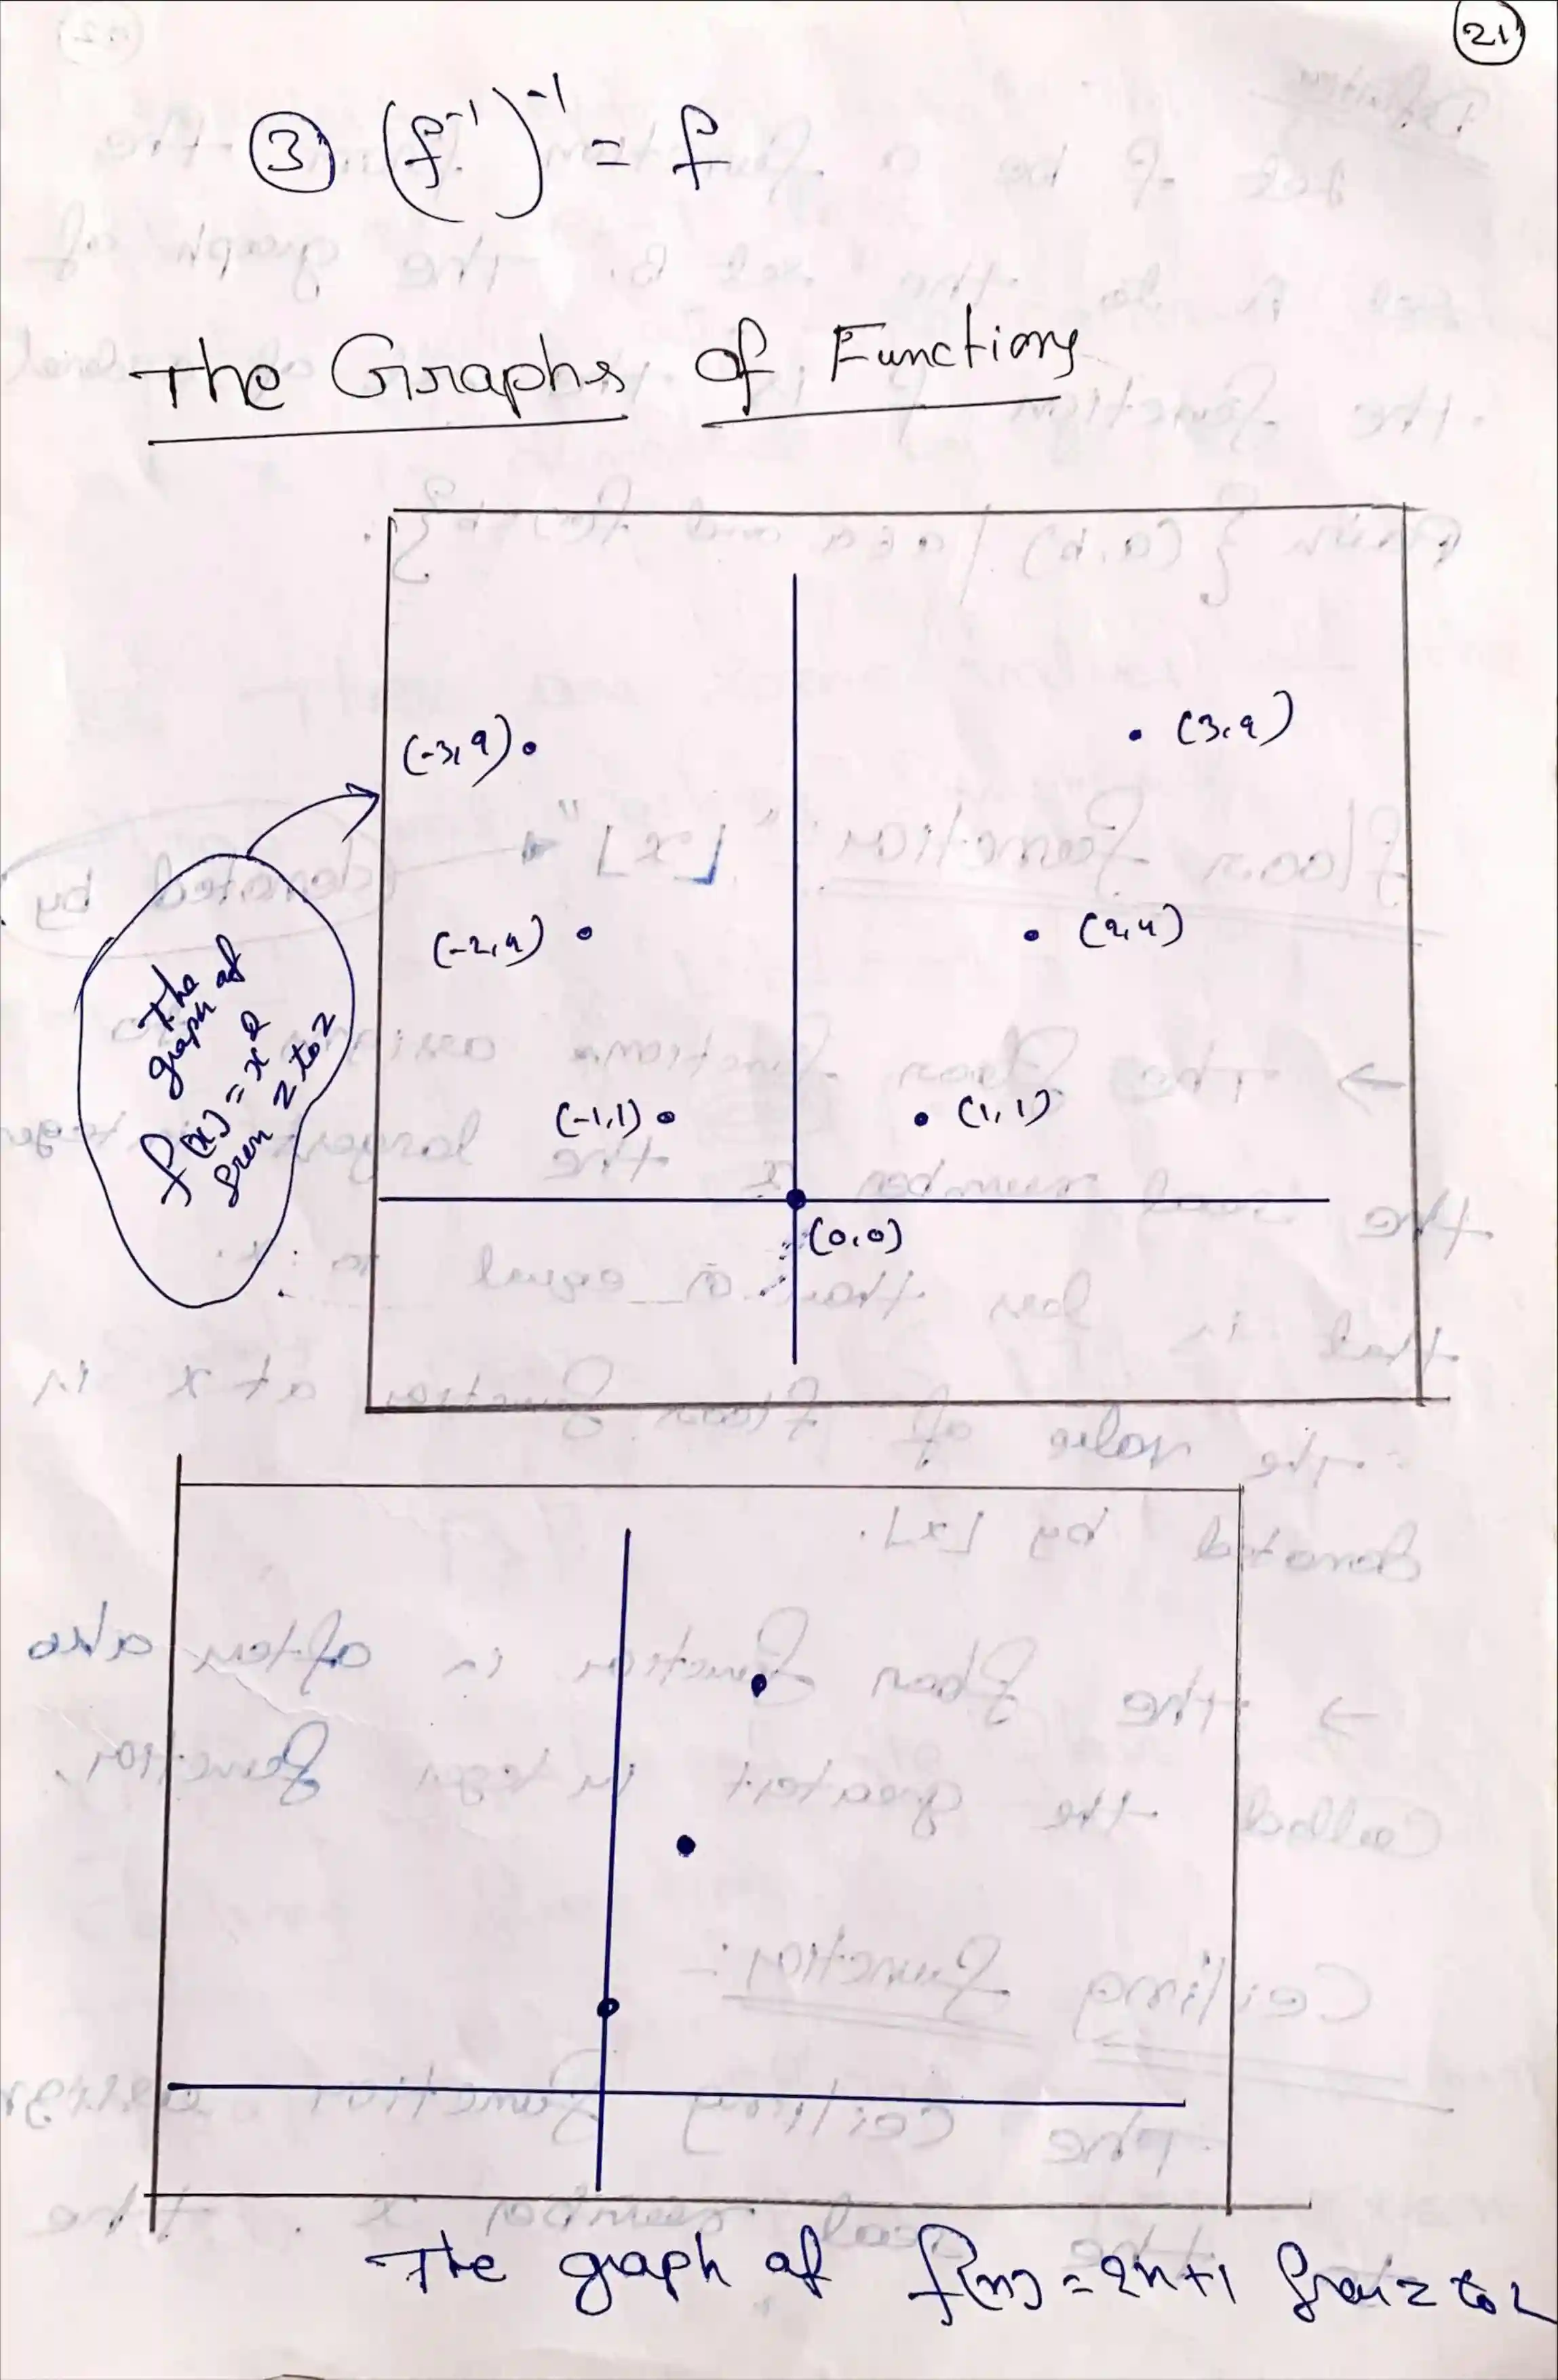 21
③ (f⁻¹)⁻¹ = f
The Graphs of Functions
(-3,9)
(3,9)
(-2,4)
(2,4)
(-1,1)
(1,1)
(0,0)
The
graph of
f(x) = x²
from Z to Z
The graph of f(n) = 2n+1 from Z to Z